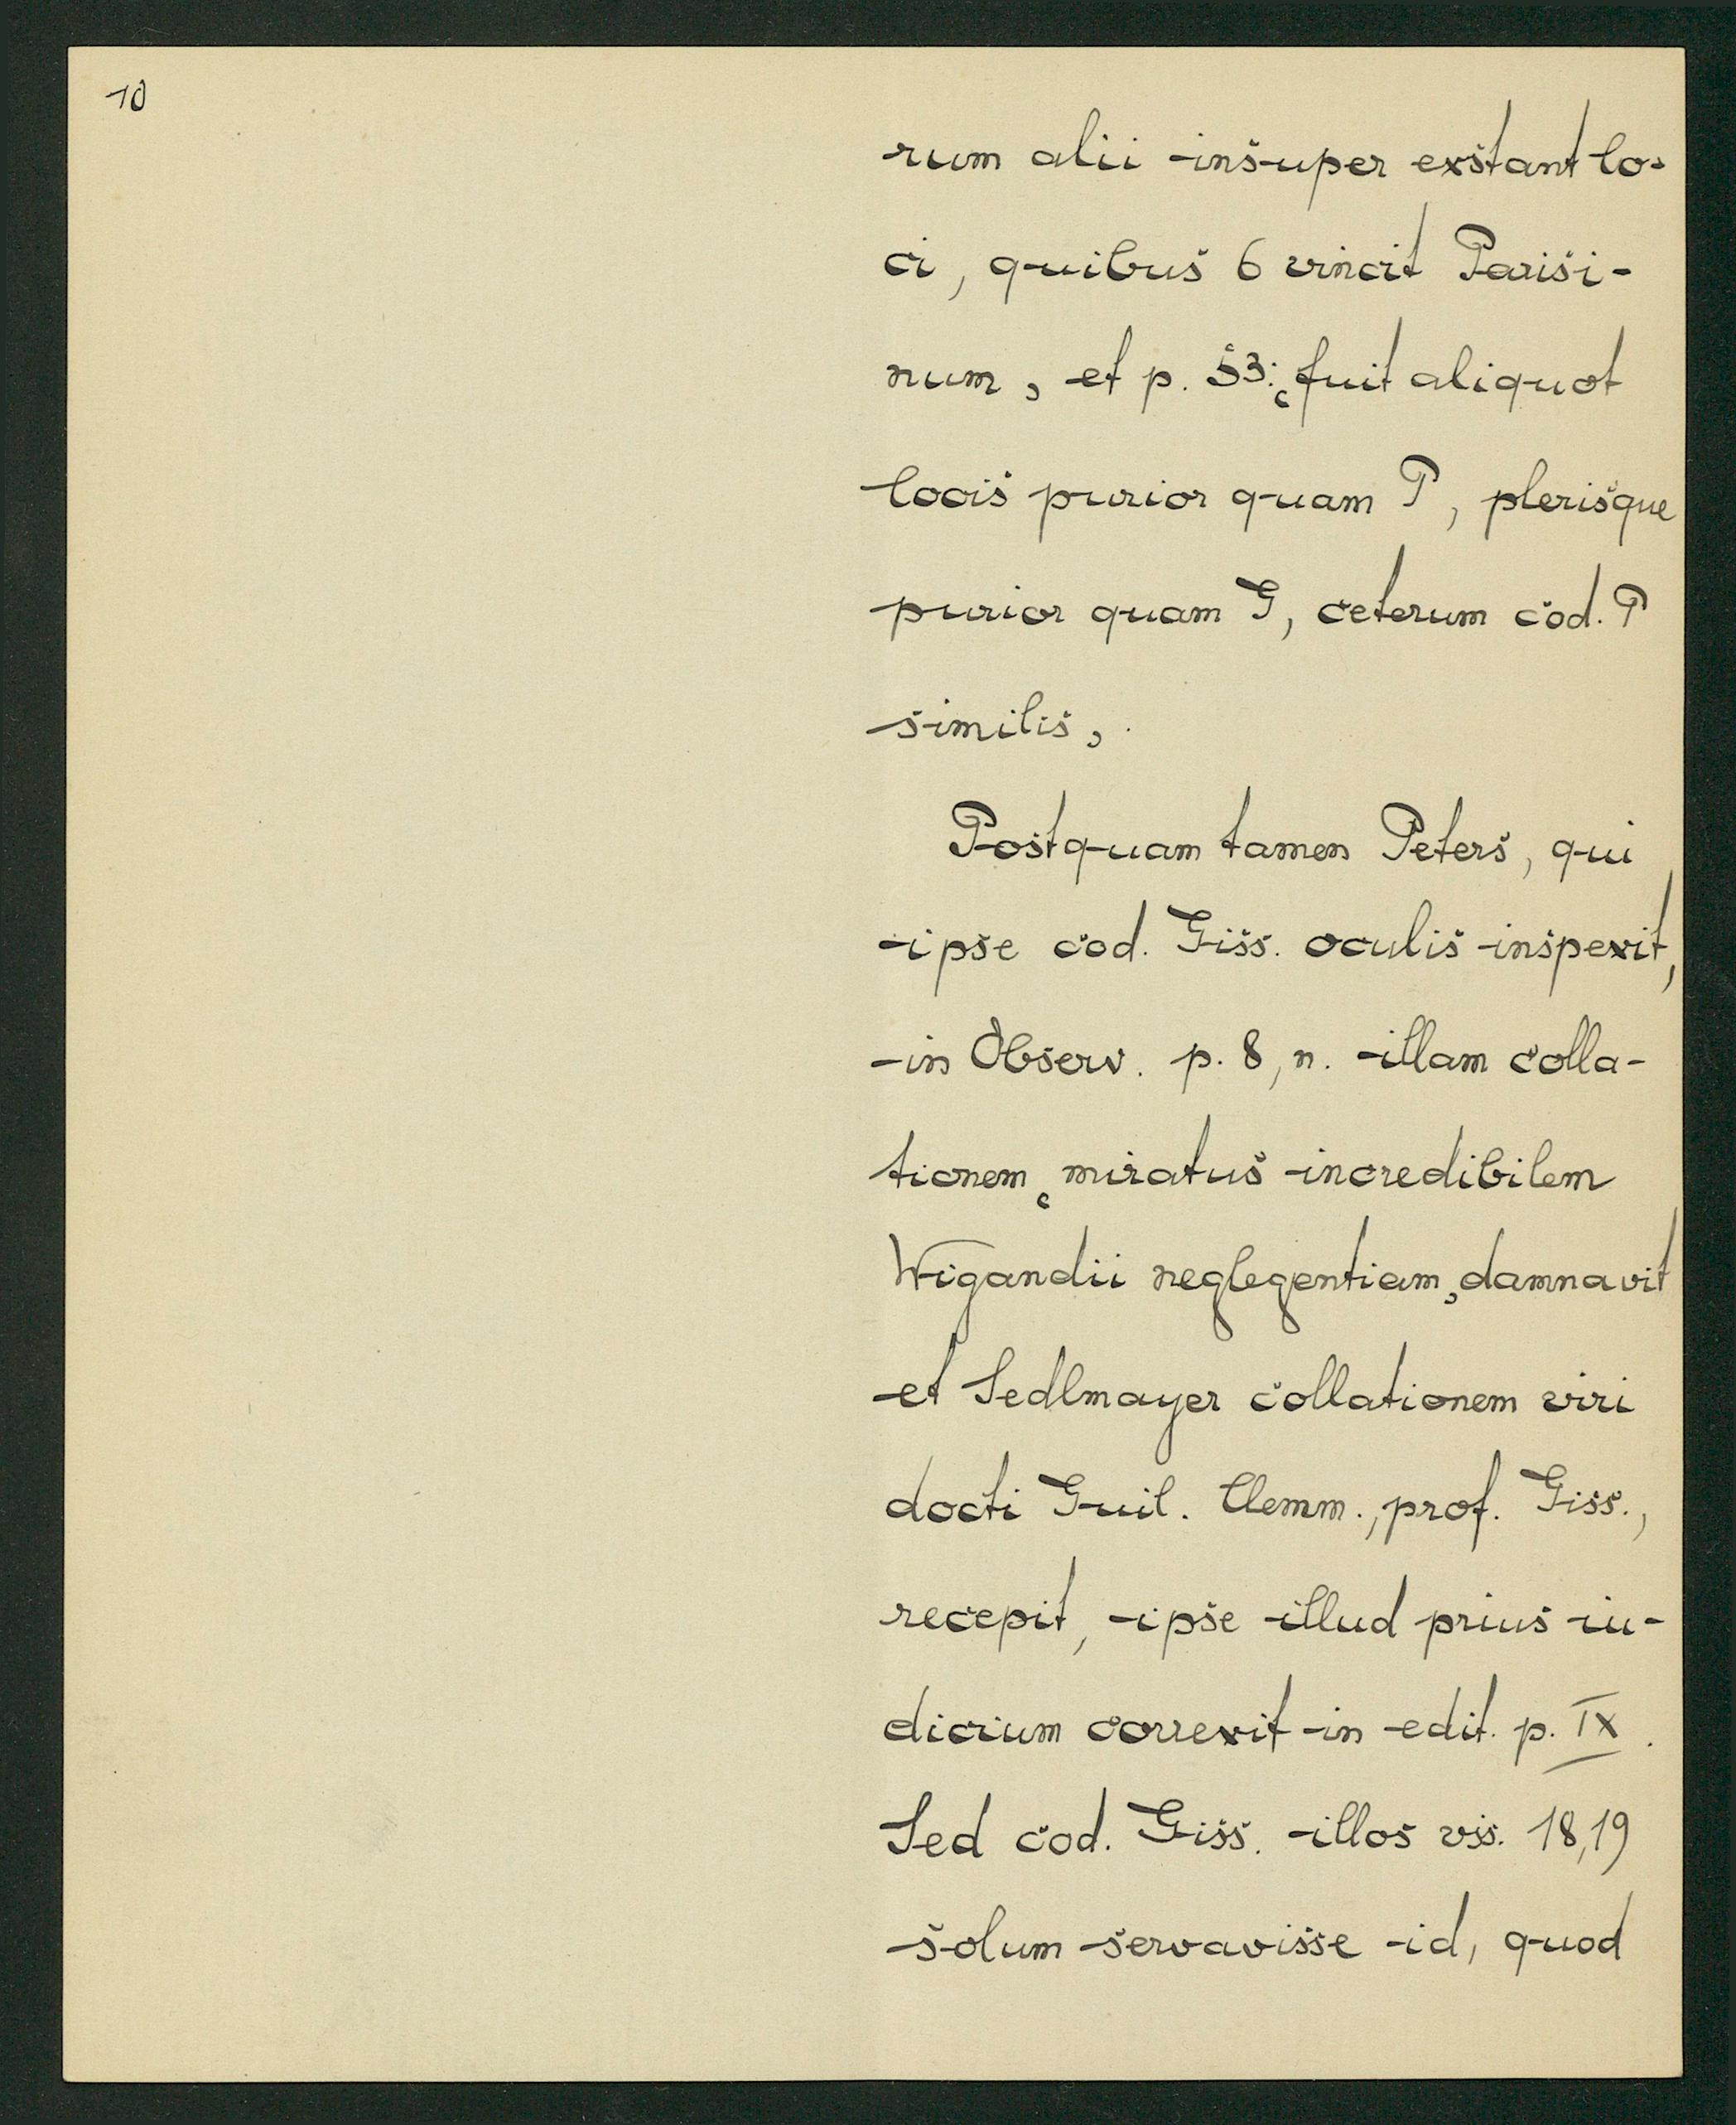 10
rum alii insuper exstant lo-
ci, quibus G vincit Parisi-
num, et p. 53: ‚fuit aliquot
locis purior quam P, plerisque
purior quam G, ceterum cod. P
similis‘.
Postquam tamen Peters, qui
ipse cod. Giss. oculis inspexit,
in Observ. p. 8, n. illam colla-
tionem ‚miratus incredibilem
Wigandii neglegentiam‘ damnavit
et Sedlmayer collationem viri
docti Guil. Clemm., prof. Giss.,
recepit, ipse illud prius iu-
dicium correxit in edit. p. IX.
Sed cod. Giss. illos vss. 18,19
solum servavisse id, quod